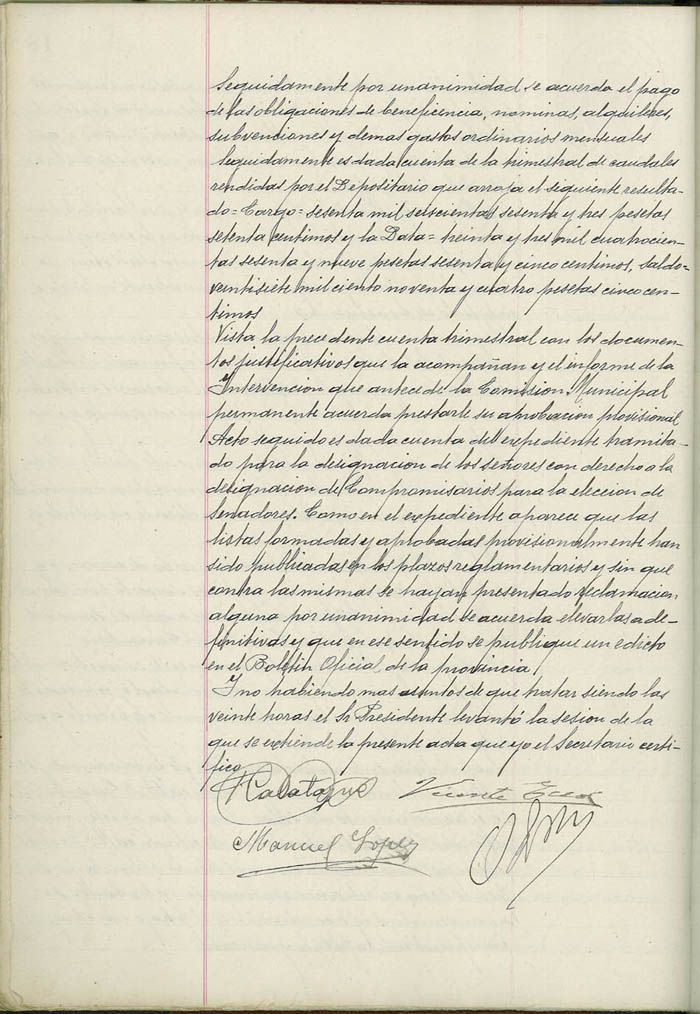 Seguidamente por unanimidad se acuerda el pago
de las obligaciones de beneficencia, nominas, alquileres,
subvenciones y demas gastos ordinarios mensuales
Seguidamente es dada cuenta de la trimestral de caudales
rendidas por el Depositario que arroja el siguiente resulta-
do= Cargo= sesenta mil seiscientas sesenta y tres pesetas
setenta centimos y la Data= treinta y tres mil cuatrocien-
tas sesenta y nueve pesetas sesenta y cinco centimos, saldo=
veintisiete mil ciento noventa y cuatro pesetas cinco cen-
timos
Vista la precedente cuenta trimestral con los documen-
tos justificativos que la acompañan y el informe de la
Intervencion que antecede la Comision Municipal
permanente acuerda prestarle su aprobacion provisional
Acto seguido es dada cuenta del expediente tramita-
do para la designacion de los señores con derecho a la
designacion de Compromisarios para la eleccion de
Senadores. Como en el expediente aparece que las
listas formadas y aprobadas provisionalmente han
sido publicadas en los plazos reglamentarios y sin que
contra las mismas se hayan presentado reclamacion
alguna por unanimidad se acuerda elevarlas a de-
finitivas y que en ese sentido se publique un edicto
en el Boletin Oficial de la provincia.
Y no habiendo mas asuntos de que tratar siendo las
veinte horas el Sr Presidente levantó la sesion de la
que se extiende la presente acta que yo el Secretario certi-
fico
Vicente
Manuel Lopez